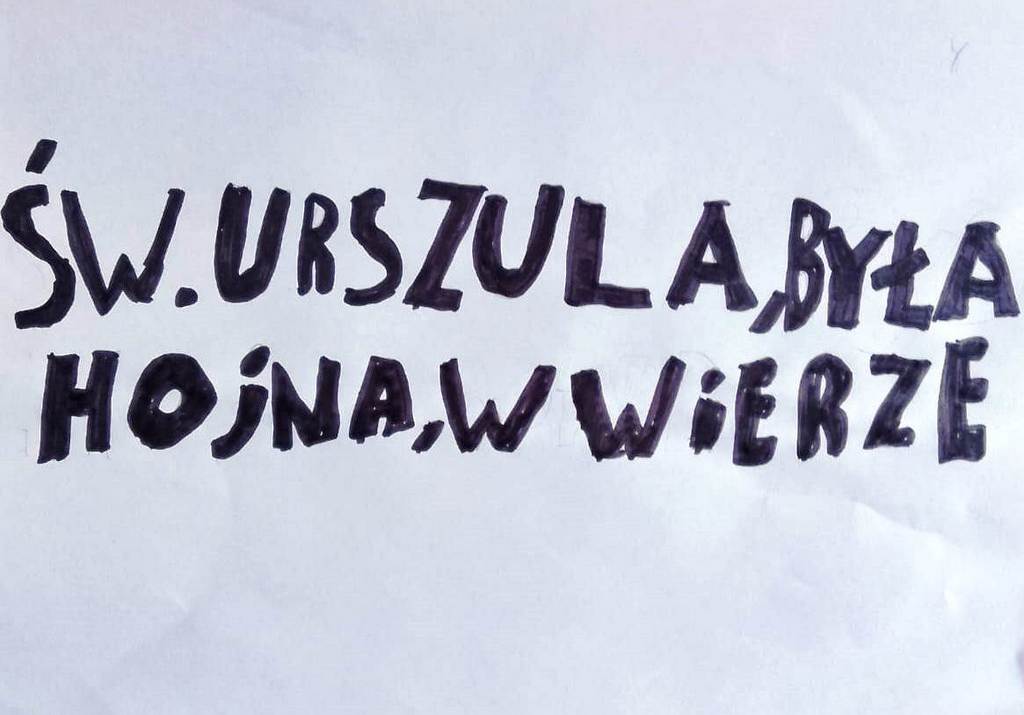 ŚW. URSZULA, BYŁA
HOjNA, W WiERZE